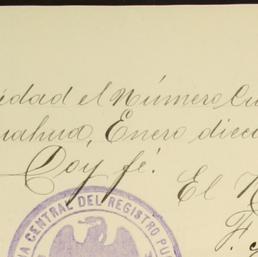 edad el Número Cu
uahua, Enero diec
Doy fé.
El N
F.
NA CENTRAL DEL REGISTRO PU